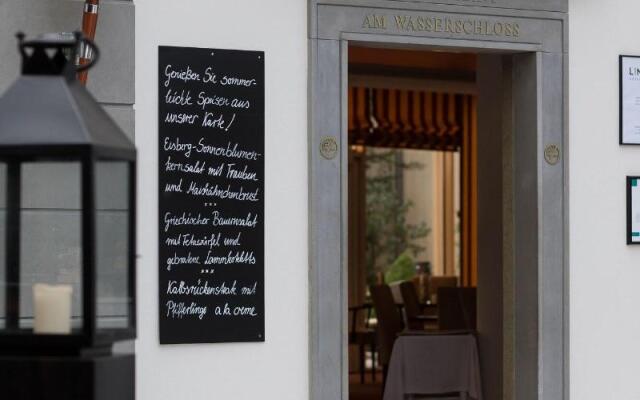 AM WASSERSCHLOSS
Genießen Sie sommer-
leichte Speisen aus
unserer Karte!
Eisberg-Sonnenblumen-
kernsalat mit Trauben
und Maishähnchenbrust
***
Griechischer Bauernsalat
mit Fetawürfel und
gebratene Lammkoteletts
***
Kalbsrückensteak mit
Pfifferlinge a la creme
LIN